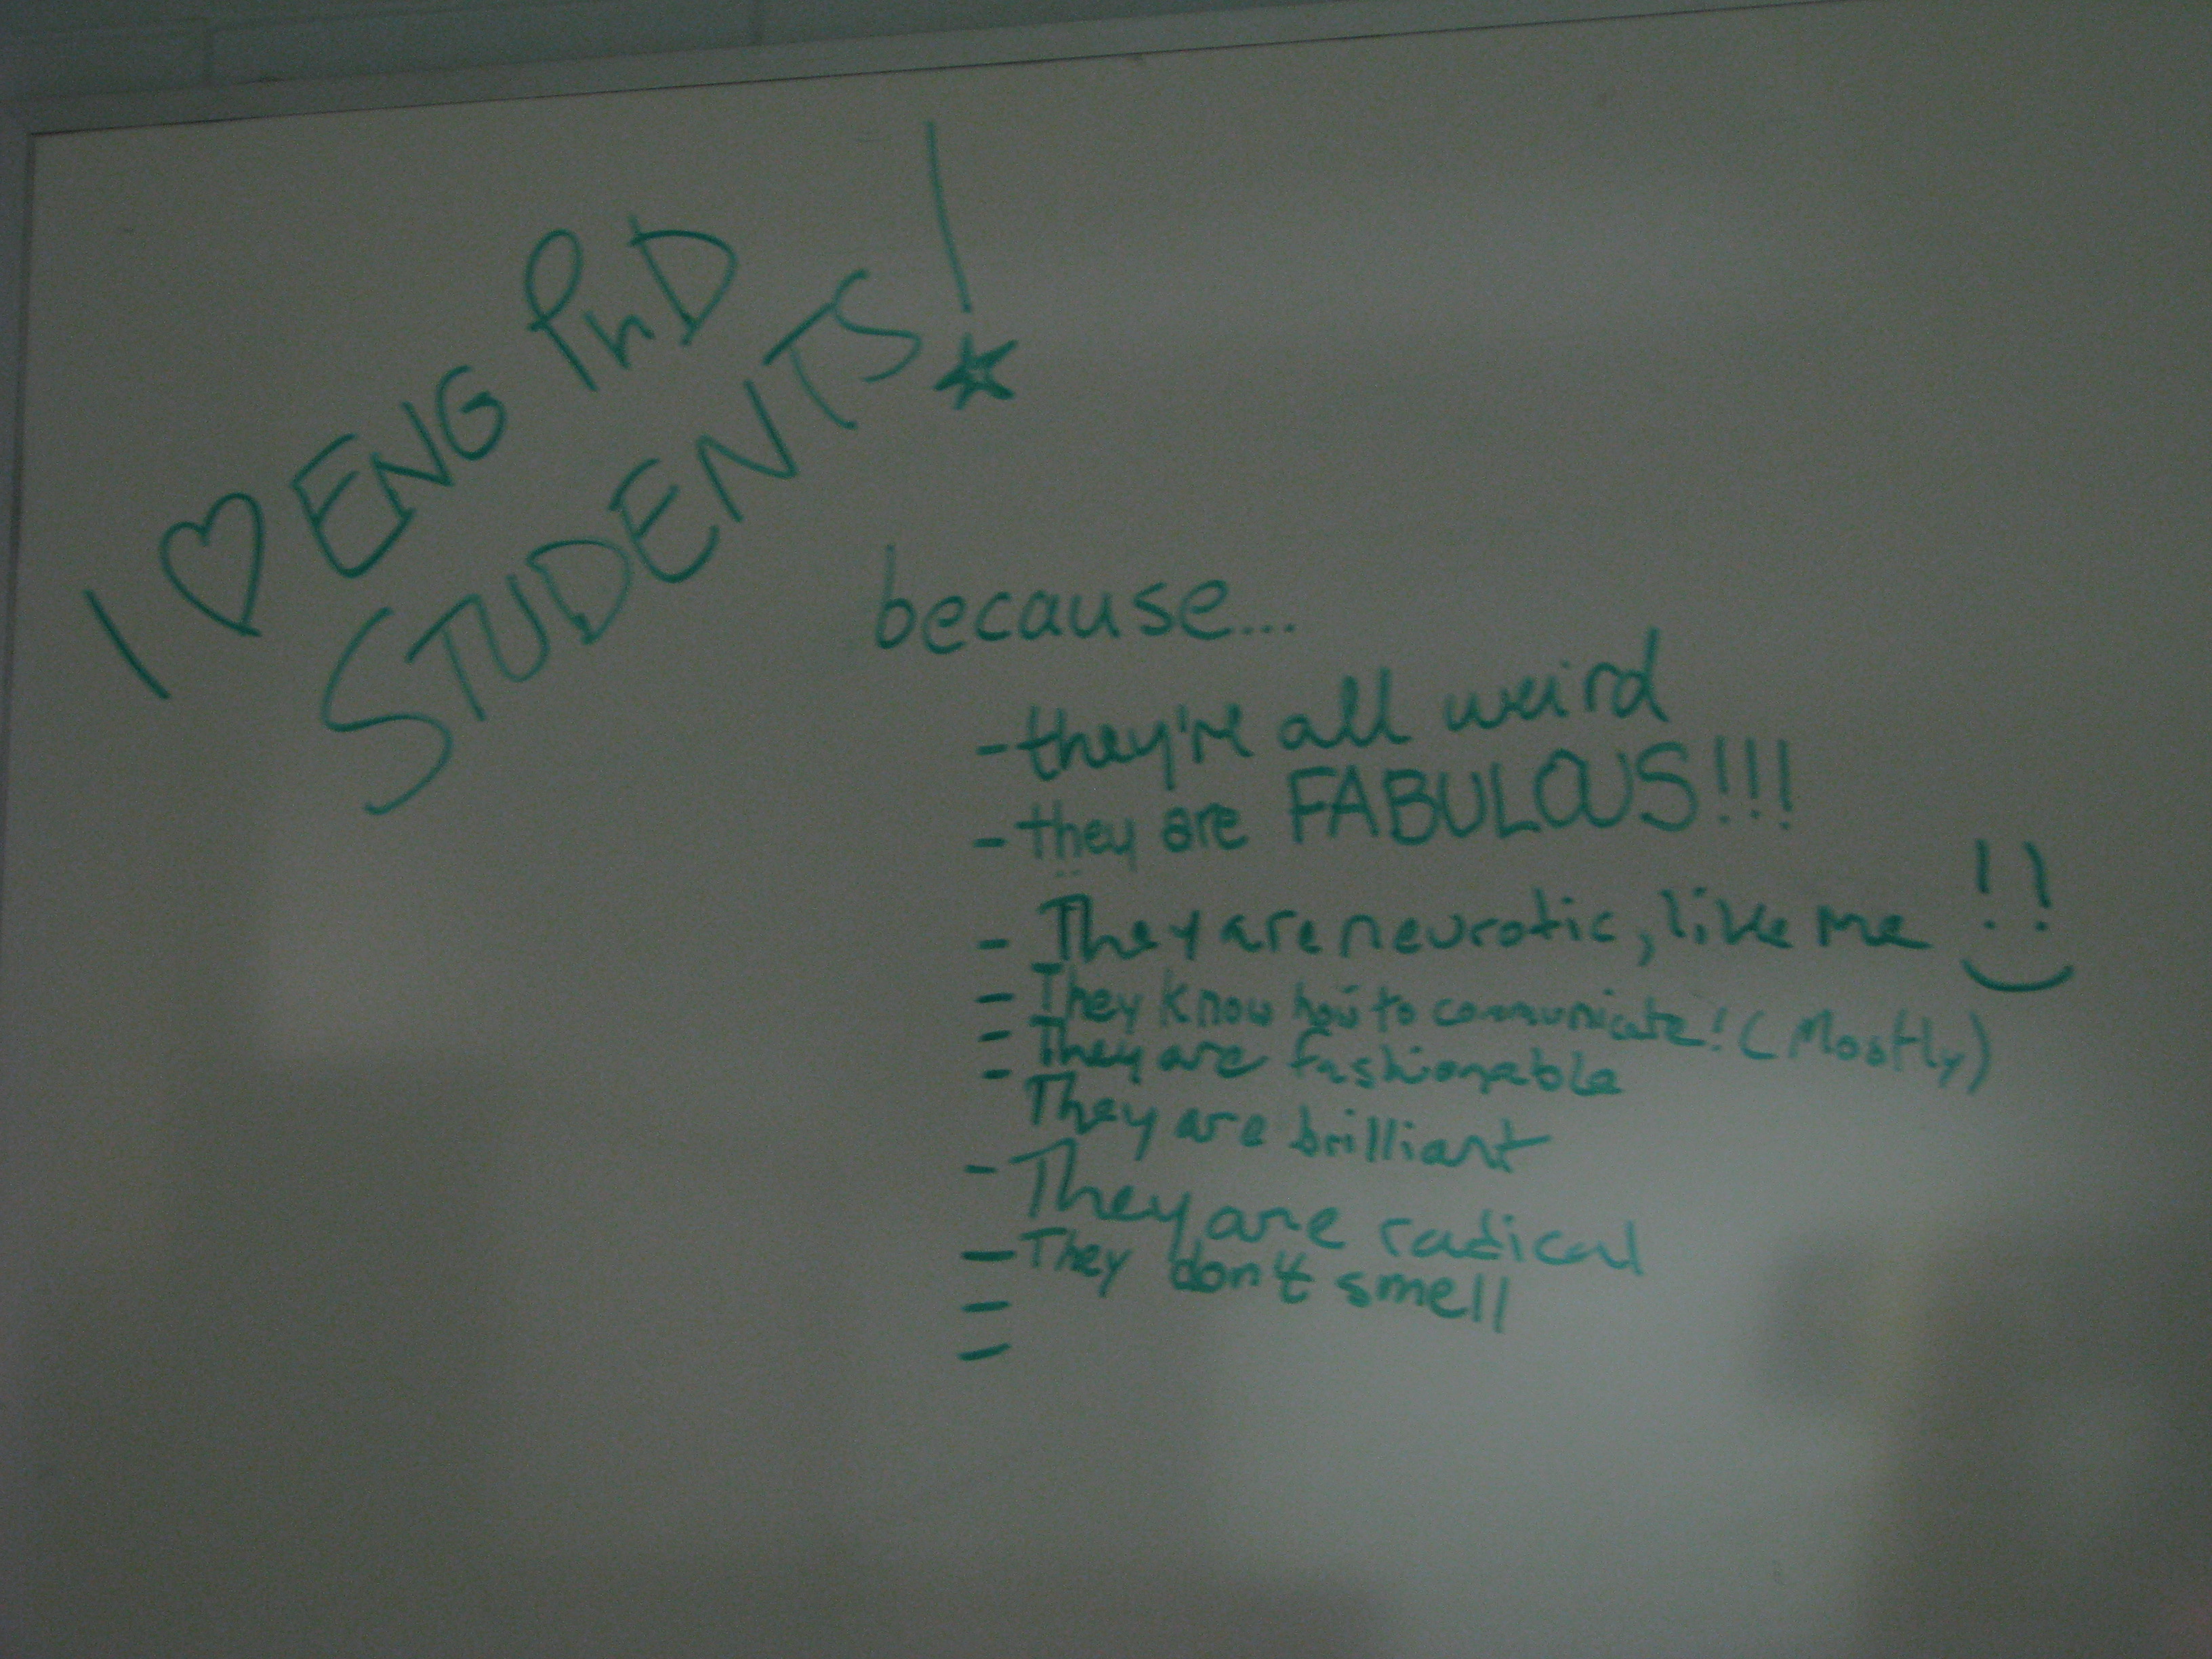 I ♡ ENG PhD
STUDENTS!
because...
- they're all weird
- they are FABULOUS!!!
- They are neurotic, like me !!
- They know how to communicate! (Mostly)
- They are fashionable
- They are brilliant
- They are radical
- They don't smell
-
-